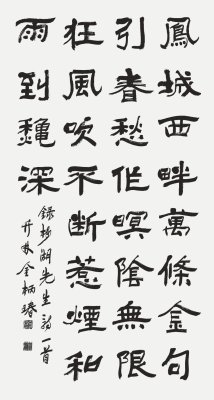 鳳城西畔萬條金句
引春愁作暝陰無限
狂風吹不斷惹煙和
雨到龝深
錄先生詩一首
金炳